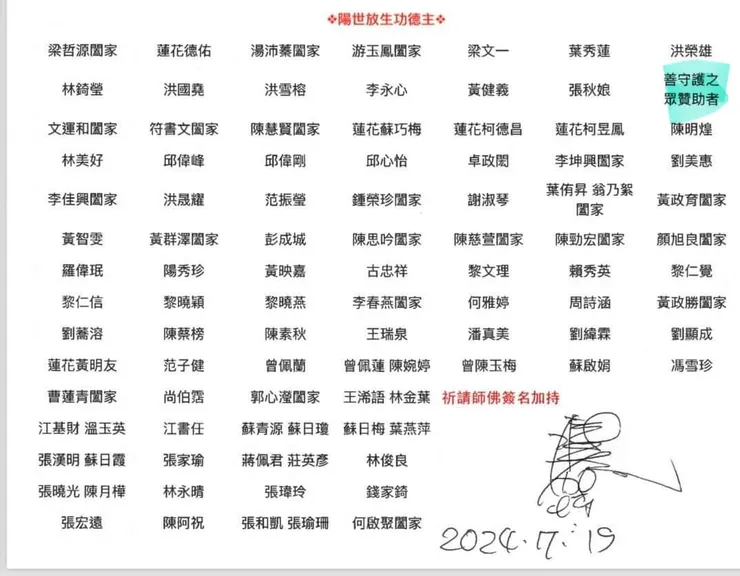 ❖陽世放生功德主❖
梁哲源闔家 蓮花德佑 湯沛蓁闔家 游玉鳳闔家 梁文一 葉秀蓮 洪榮雄
林錡瑩 洪國堯 洪雪榕 李永心 黃健義 張秋娘 善守護之
眾贊助者
文運和闔家 符書文闔家 陳慧賢闔家 蓮花蘇巧梅 蓮花柯德昌 蓮花柯昱鳳 陳明煌
林美好 邱偉峰 邱偉剛 邱心怡 卓政閎 李坤興闔家 劉美惠
李佳興闔家 洪晟耀 范振瑩 鍾榮珍闔家 謝淑琴 葉侑昇 翁乃絮
闔家 黃政育闔家
黃智雯 黃群澤闔家 彭成城 陳思吟闔家 陳慈萱闔家 陳勁宏闔家 顏旭良闔家
羅偉珉 陽秀珍 黃映嘉 古忠祥 黎文理 賴秀英 黎仁覺
黎仁信 黎曉穎 黎曉燕 李春燕闔家 何雅婷 周詩涵 黃政勝闔家
劉蕎溶 陳蔡榜 陳素秋 王瑞泉 潘真美 劉緯霖 劉顯成
蓮花黃明友 范子健 曾佩蘭 曾佩蓮 陳婉婷 曾陳玉梅 蘇啟娟 馮雪珍
曹蓮青闔家 尚伯霑 郭心瀅闔家 王浠語 林金葉 祈請師佛簽名加持
江基財 溫玉英 江書任 蘇青源 蘇日瓊 蘇日梅 葉燕萍
張漢明 蘇日霞 張家瑜 蔣佩君 莊英彥 林俊良
張曉光 陳月樺 林永晴 張瑋玲 錢家錡
張宏遠 陳阿祝 張和凱 張瑜珊 何啟聚闔家
2024.7.19